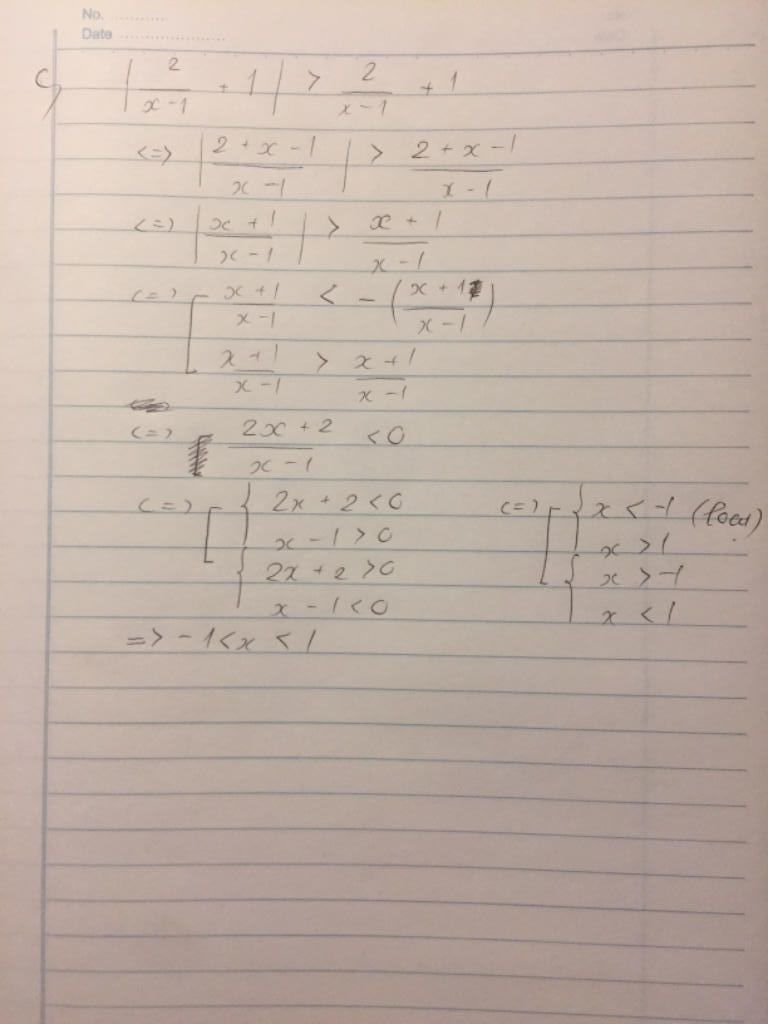 No. ............
Date ........................
c, | 2/(x-1) + 1 | > 2/(x-1) + 1
<=> | (2+x-1)/(x-1) | > (2+x-1)/(x-1)
<=> | (x+1)/(x-1) | > (x+1)/(x-1)
<=> [ (x+1)/(x-1) < -( (x+1)/(x-1) )
(x+1)/(x-1) > (x+1)/(x-1)
<=> (2x+2)/(x-1) < 0
<=> [ { 2x+2<0 <=> [ { x < -1 (loại)
x-1>0 x > 1
{ 2x+2>0 { x > -1
x-1<0 x < 1
=> -1<x<1